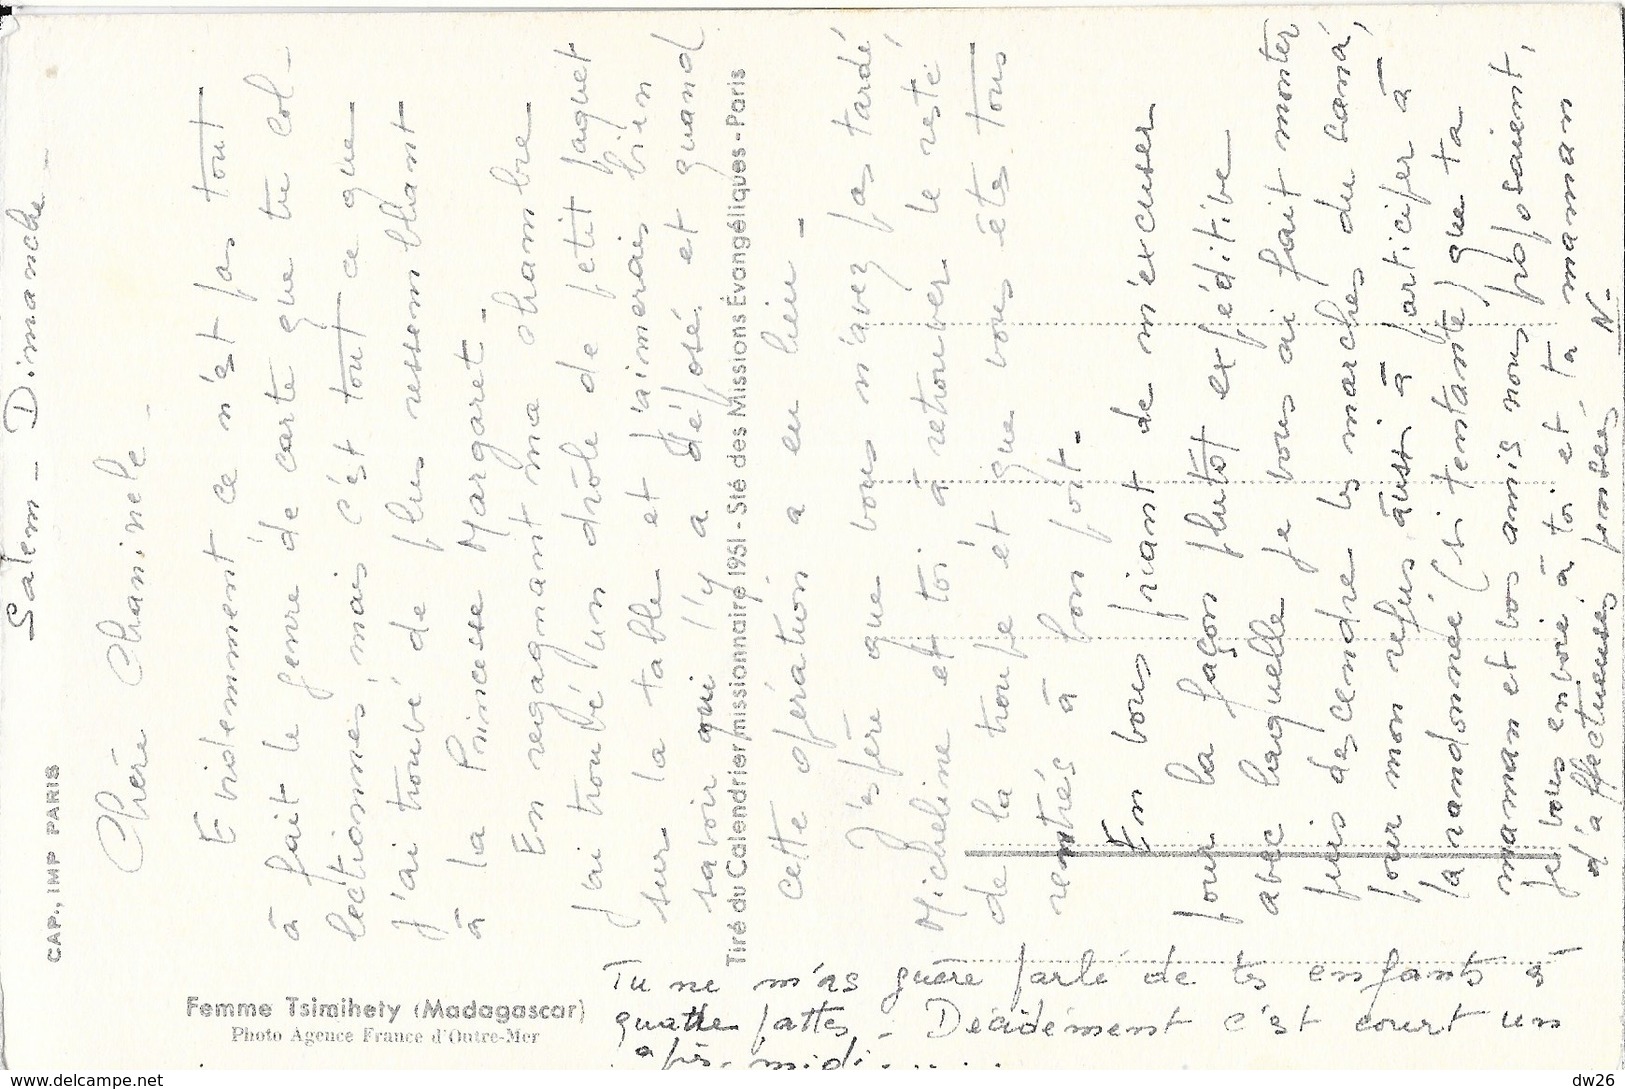 Salem - Dimanche -
Chère Chaminele -
Evidemment ce n'est pas tout
à fait le genre de carte que tu col-
lectionnes, mais c'est tout ce que
j'ai trouvé de plus ressemblant
à la Princesse Margaret -
En regagnant ma chambre
j'ai trouvé un drôle de petit paquet
sur la table et j'aimerais bien
savoir qui l'y a déposé et quand
cette opération a eu lieu -
J'espère que vous n'avez pas tardé,
Micheline et toi à retrouver le reste
de la troupe et que vous êtes tous
rentrés à bon port -
En vous priant de m'excuser
pour la façon plutôt expéditive
avec laquelle je vous ai fait monter
puis descendre les marches du sana,
pour mon refus aussi à participer à
la randonnée (si tentante) que ta
maman et vos amis nous proposaient,
je vous envoie à toi et ta maman
d'affectueuses pensées N-
Tu ne m'as guère parlé de tes enfants à
quatre pattes - Décidément c'est court un
après-midi.....
CAP., IMP PARIS
Tiré du Calendrier missionnaire 1951 - Sté des Missions Évangéliques - Paris
Femme Tsimihety (Madagascar)
Photo Agence France d'Outre-Mer
www.delcampe.net
dw26